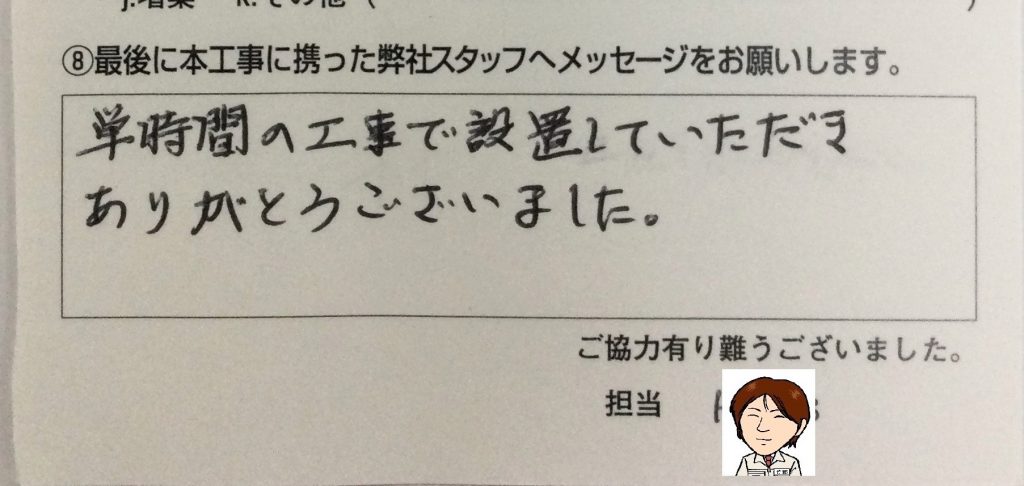 J.増築 K.その他 (　)
⑧最後に本工事に携った弊社スタッフへメッセージをお願いします。
単時間の工事で設置していただき
ありがとうございました。
ご協力有り難うございました。
担当